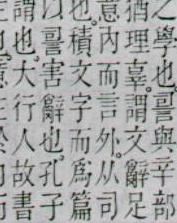 之學也䛐與辛部
猶理辜謂文辭足
意內而言外从司
也積文字而爲篇
以䛐害辭也孔子
謂也大行人故書